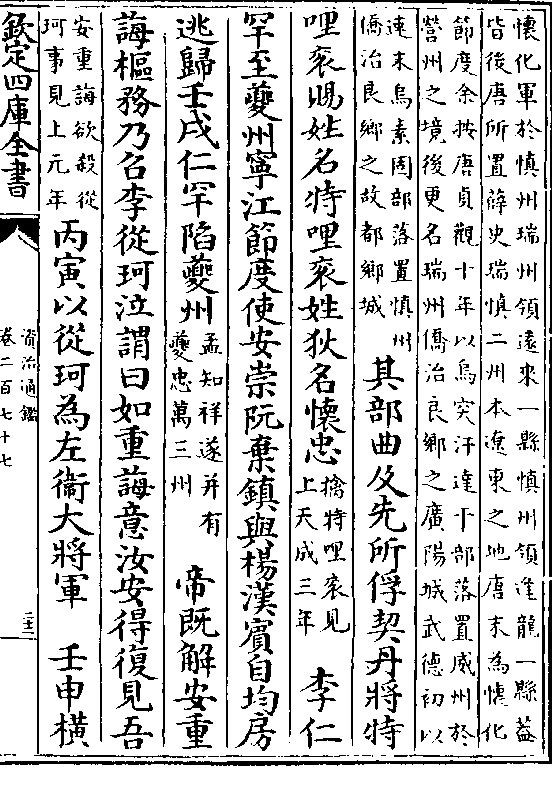 懷化軍於慎州瑞州領遠來一縣慎州領逢龍一縣葢
皆後唐所置薛史瑞慎二州本遼東之地唐末為懷化
節度余按唐貞觀十年以烏突汗達干部落置威州於
營州之境後更名瑞州僑治良鄉之廣陽城武德初以
速末烏素固部落置慎州
僑治良鄉之故都鄉城
其部曲及先所俘契丹將特
哩衮賜姓名特哩衮姓狄名懷忠
擒特哩衮見
上天成三年
李仁
罕至夔州寧江節度使安崇阮棄鎮與楊漢賓自均房
逃歸壬戌仁罕陷夔州
孟知祥遂并有
夔忠萬三州
帝既解安重
誨樞務乃召李從珂泣謂曰如重誨意汝安得復見吾
安重誨欲殺從
珂事見上元年
丙寅以從珂為左衞大將軍 壬申橫
欽定四庫全書
資治通鑑
卷二百七十七